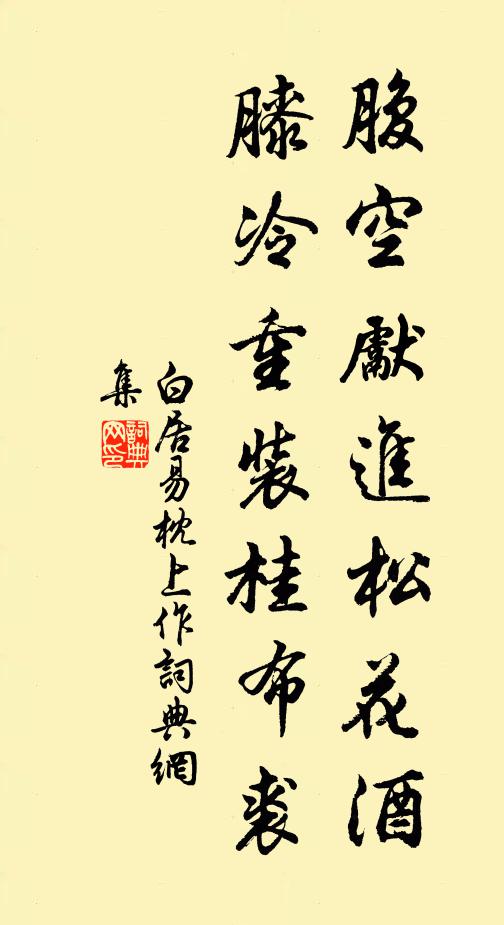 腹空獻進松花酒
膝冷重裝桂布裘
白居易枕上作詞典網
集
詞典
网印